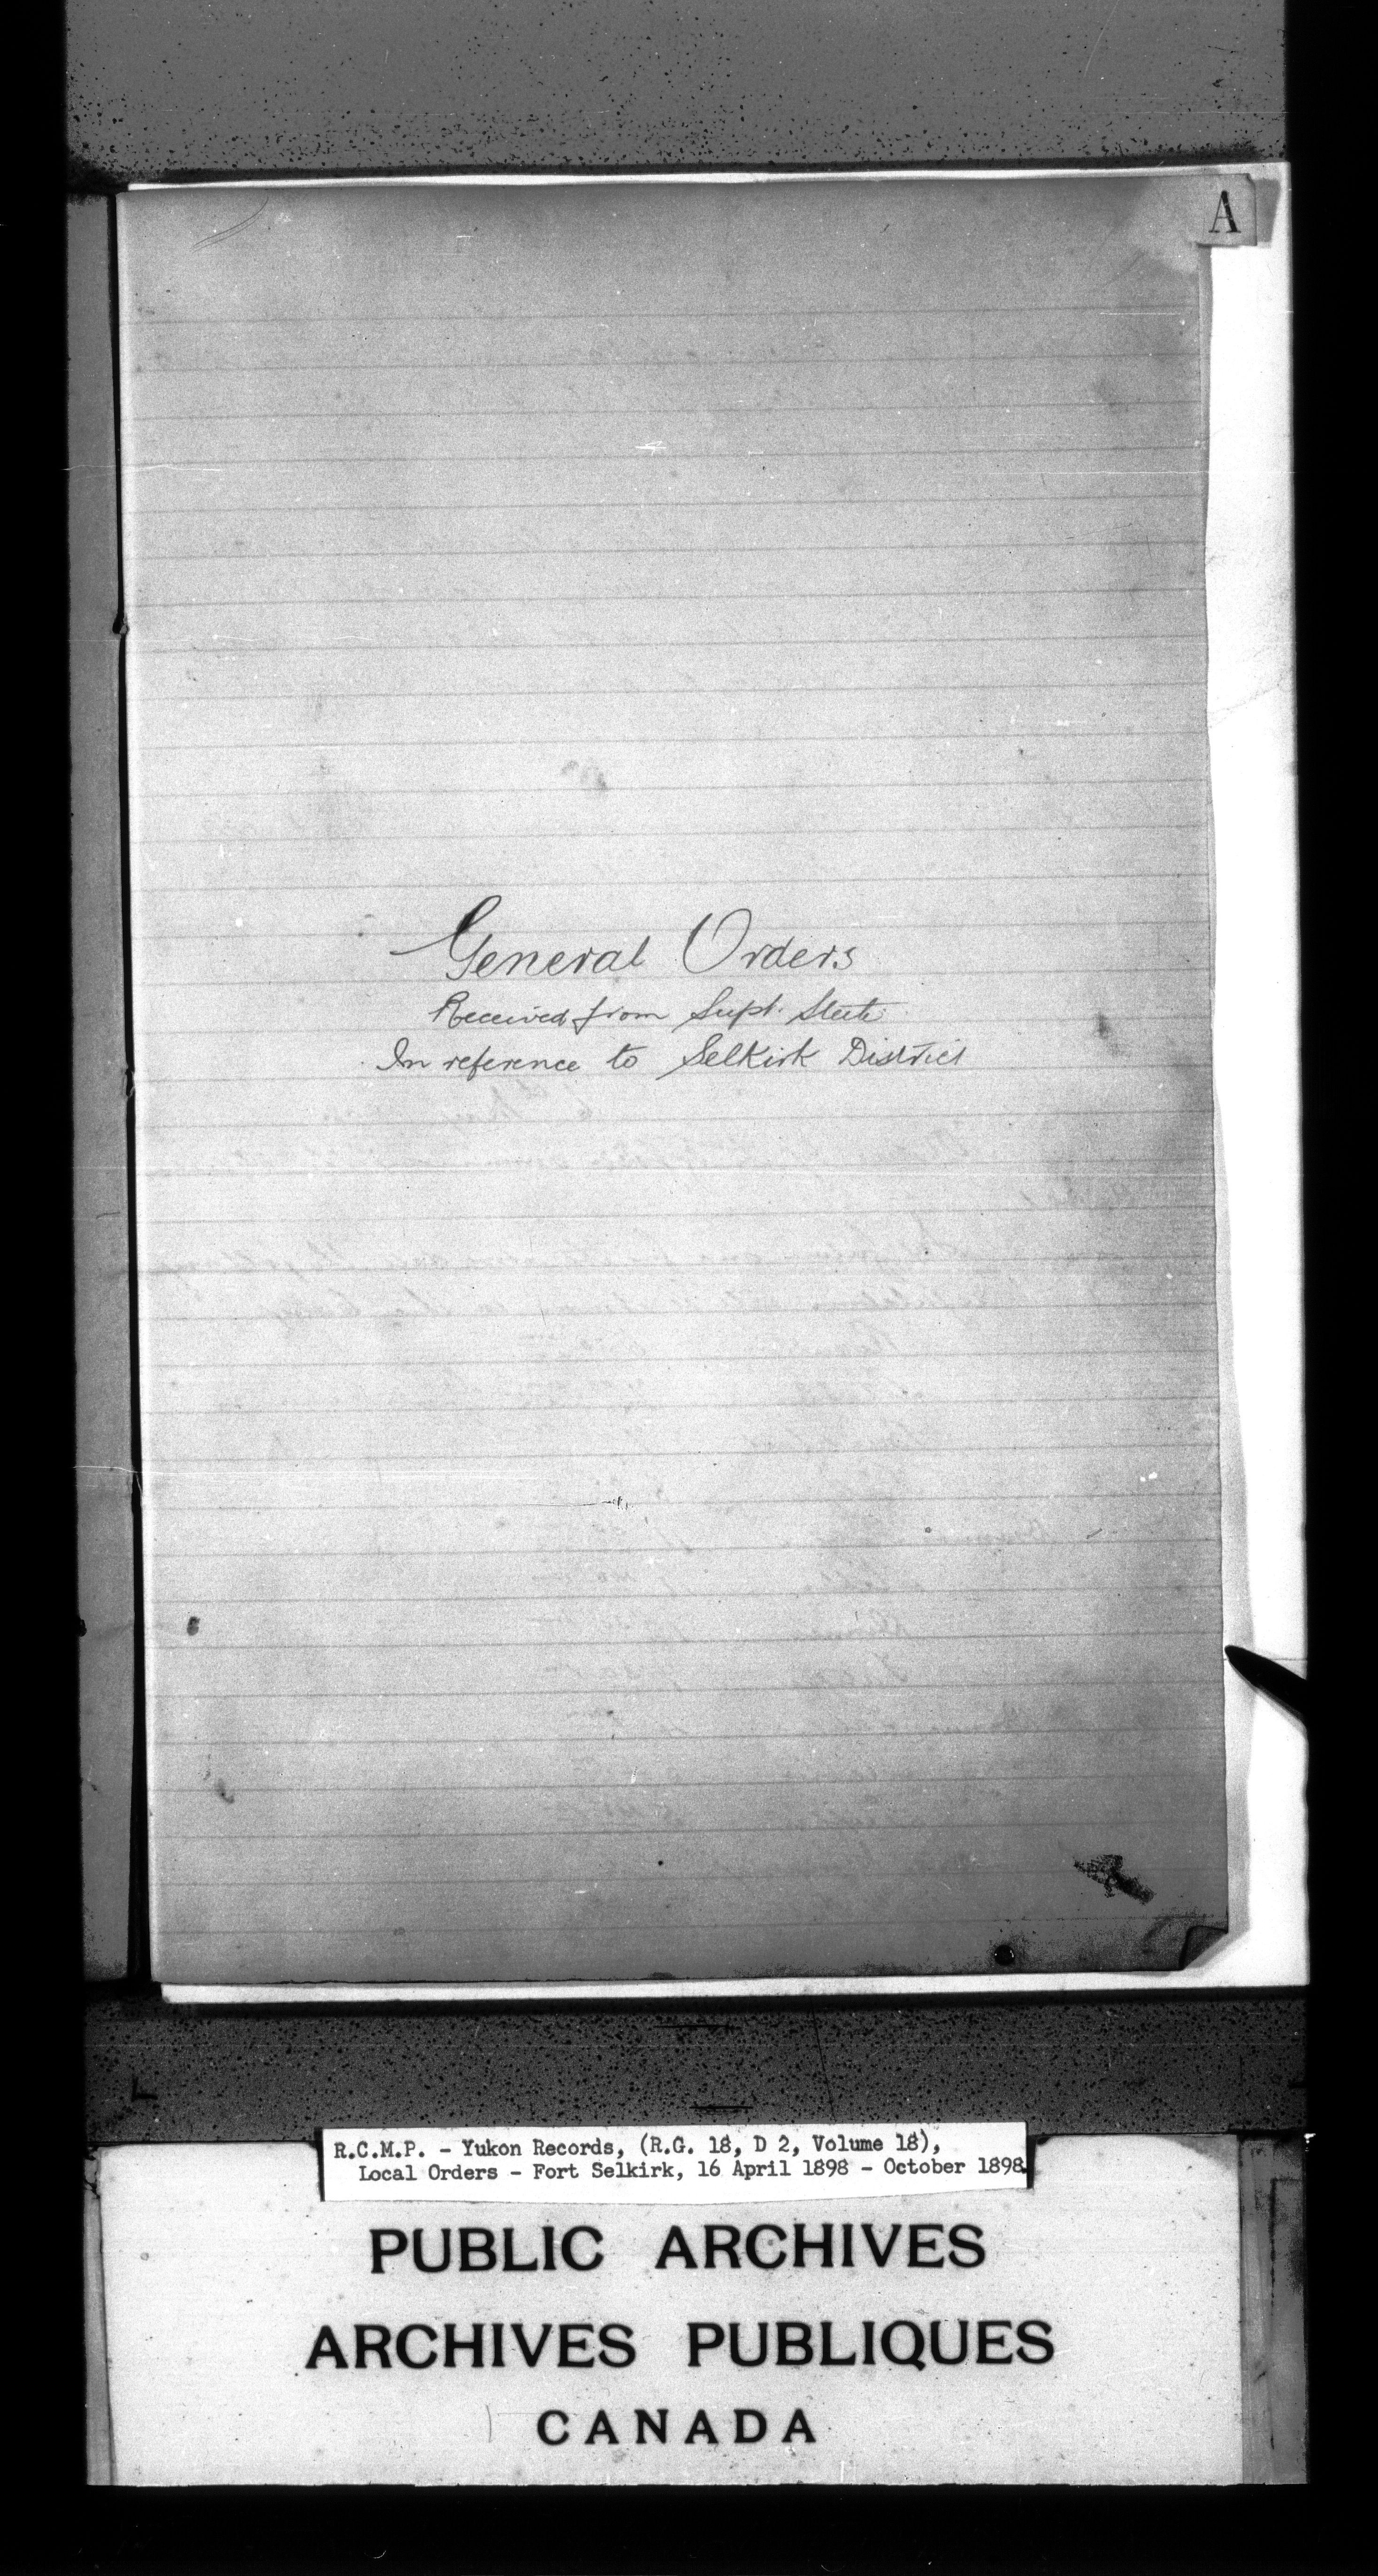 A
General Orders
Received from Supt. Steele
In reference to Selkirk District
R.C.M.P. - Yukon Records, (R.G. 18, D 2, Volume 18),
Local Orders - Fort Selkirk, 16 April 1898 - October 1898
PUBLIC ARCHIVES
ARCHIVES PUBLIQUES
CANADA